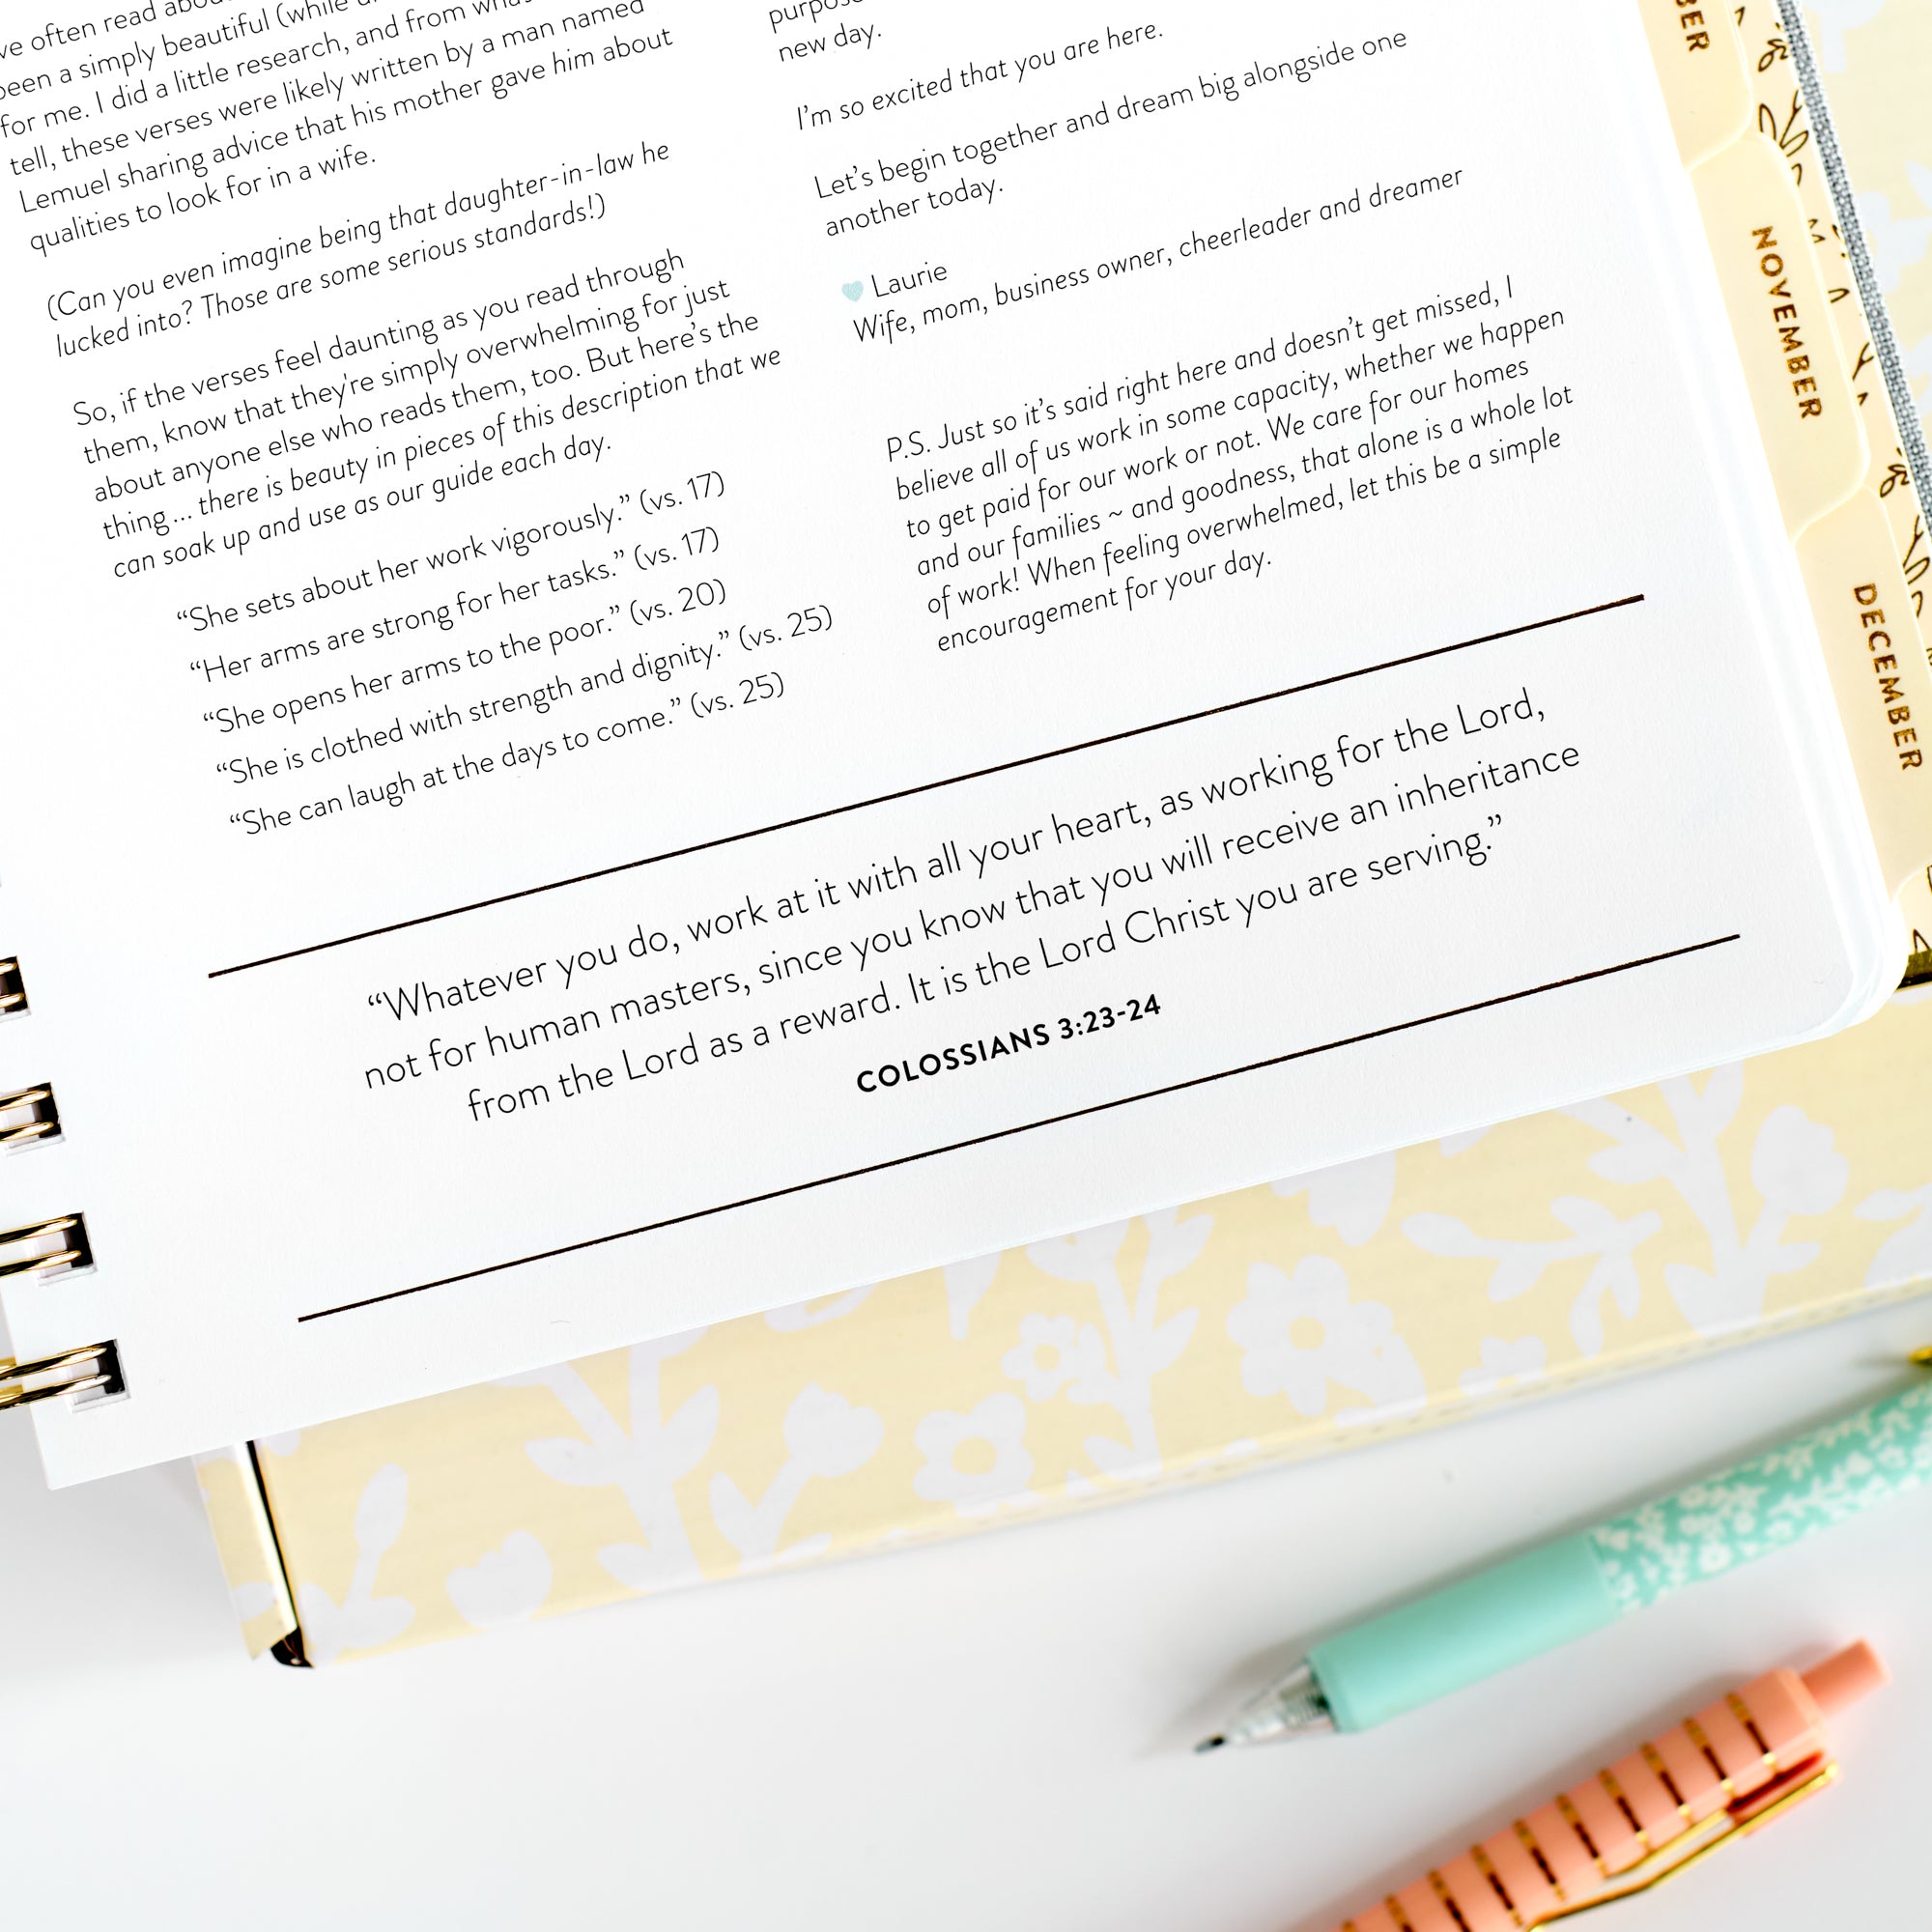 ve often read
been a simply beautiful (while
for me. I did a little research, and from
tell, these verses were likely written by a man named
Lemuel sharing advice that his mother gave him about
qualities to look for in a wife.
(Can you even imagine being that daughter-in-law he
lucked into? Those are some serious standards!)
So, if the verses feel daunting as you read through
them, know that they're simply overwhelming for just
about anyone else who reads them, too. But here's the
thing... there is beauty in pieces of this description that we
can soak up and use as our guide each day.
“She sets about her work vigorously.” (vs. 17)
“Her arms are strong for her tasks.” (vs. 17)
“She opens her arms to the poor.” (vs. 20)
“She is clothed with strength and dignity.” (vs. 25)
“She can laugh at the days to come.” (vs. 25)
new day.
I'm so excited that you are here.
Let's begin together and dream big alongside one
another today.
Laurie
Wife, mom, business owner, cheerleader and dreamer
P.S. Just so it's said right here and doesn't get missed, I
believe all of us work in some capacity, whether we happen
to get paid for our work or not. We care for our homes
and our families ~ and goodness, that alone is a whole lot
of work! When feeling overwhelmed, let this be a simple
encouragement for your day.
“Whatever you do, work at it with all your heart, as working for the Lord,
not for human masters, since you know that you will receive an inheritance
from the Lord as a reward. It is the Lord Christ you are serving.”
COLOSSIANS 3:23-24
BER
NOVEMBER
DECEMBER